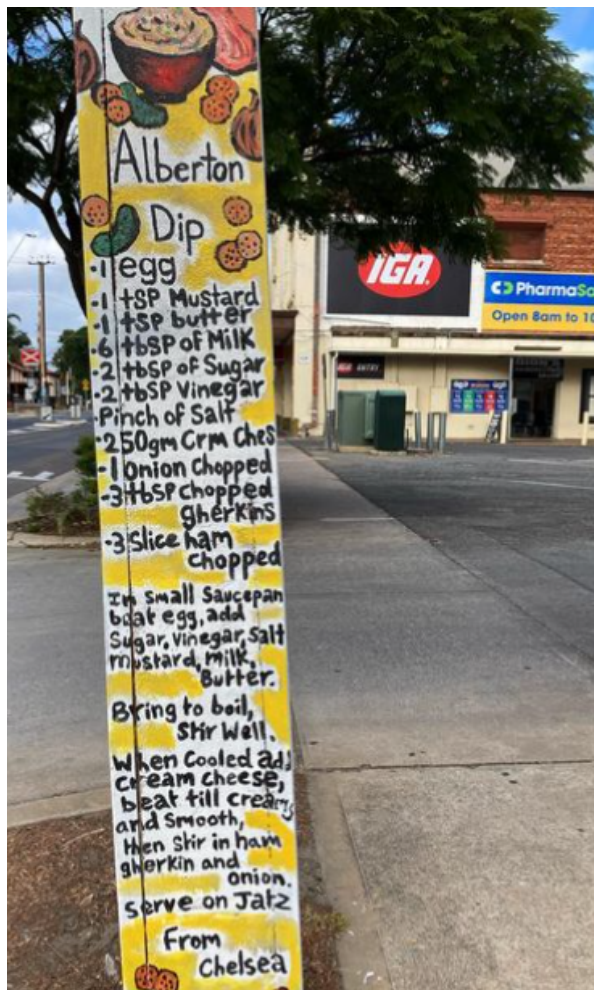 Alberton
Dip
-1 egg
-1 tsp Mustard
-1 tsp butter
-6 tbsp of Milk
-2 tbsp of Sugar
-2 tbsp Vinegar
-Pinch of Salt
-250gm Crm Ches
-1 onion Chopped
-3 tbsp chopped
gherkins
-3 Slice ham
chopped
In small Saucepan
beat egg, add
Sugar, vinegar, salt
mustard, milk,
Butter.
Bring to boil,
Stir Well.
When Cooled ad
cream cheese,
beat till creamy
and Smooth,
then stir in ham
gherkin and
onion.
serve on Jatz
From
Chelsea
IGA
PharmaSa
Open 8am to 10
IGA ENTRY